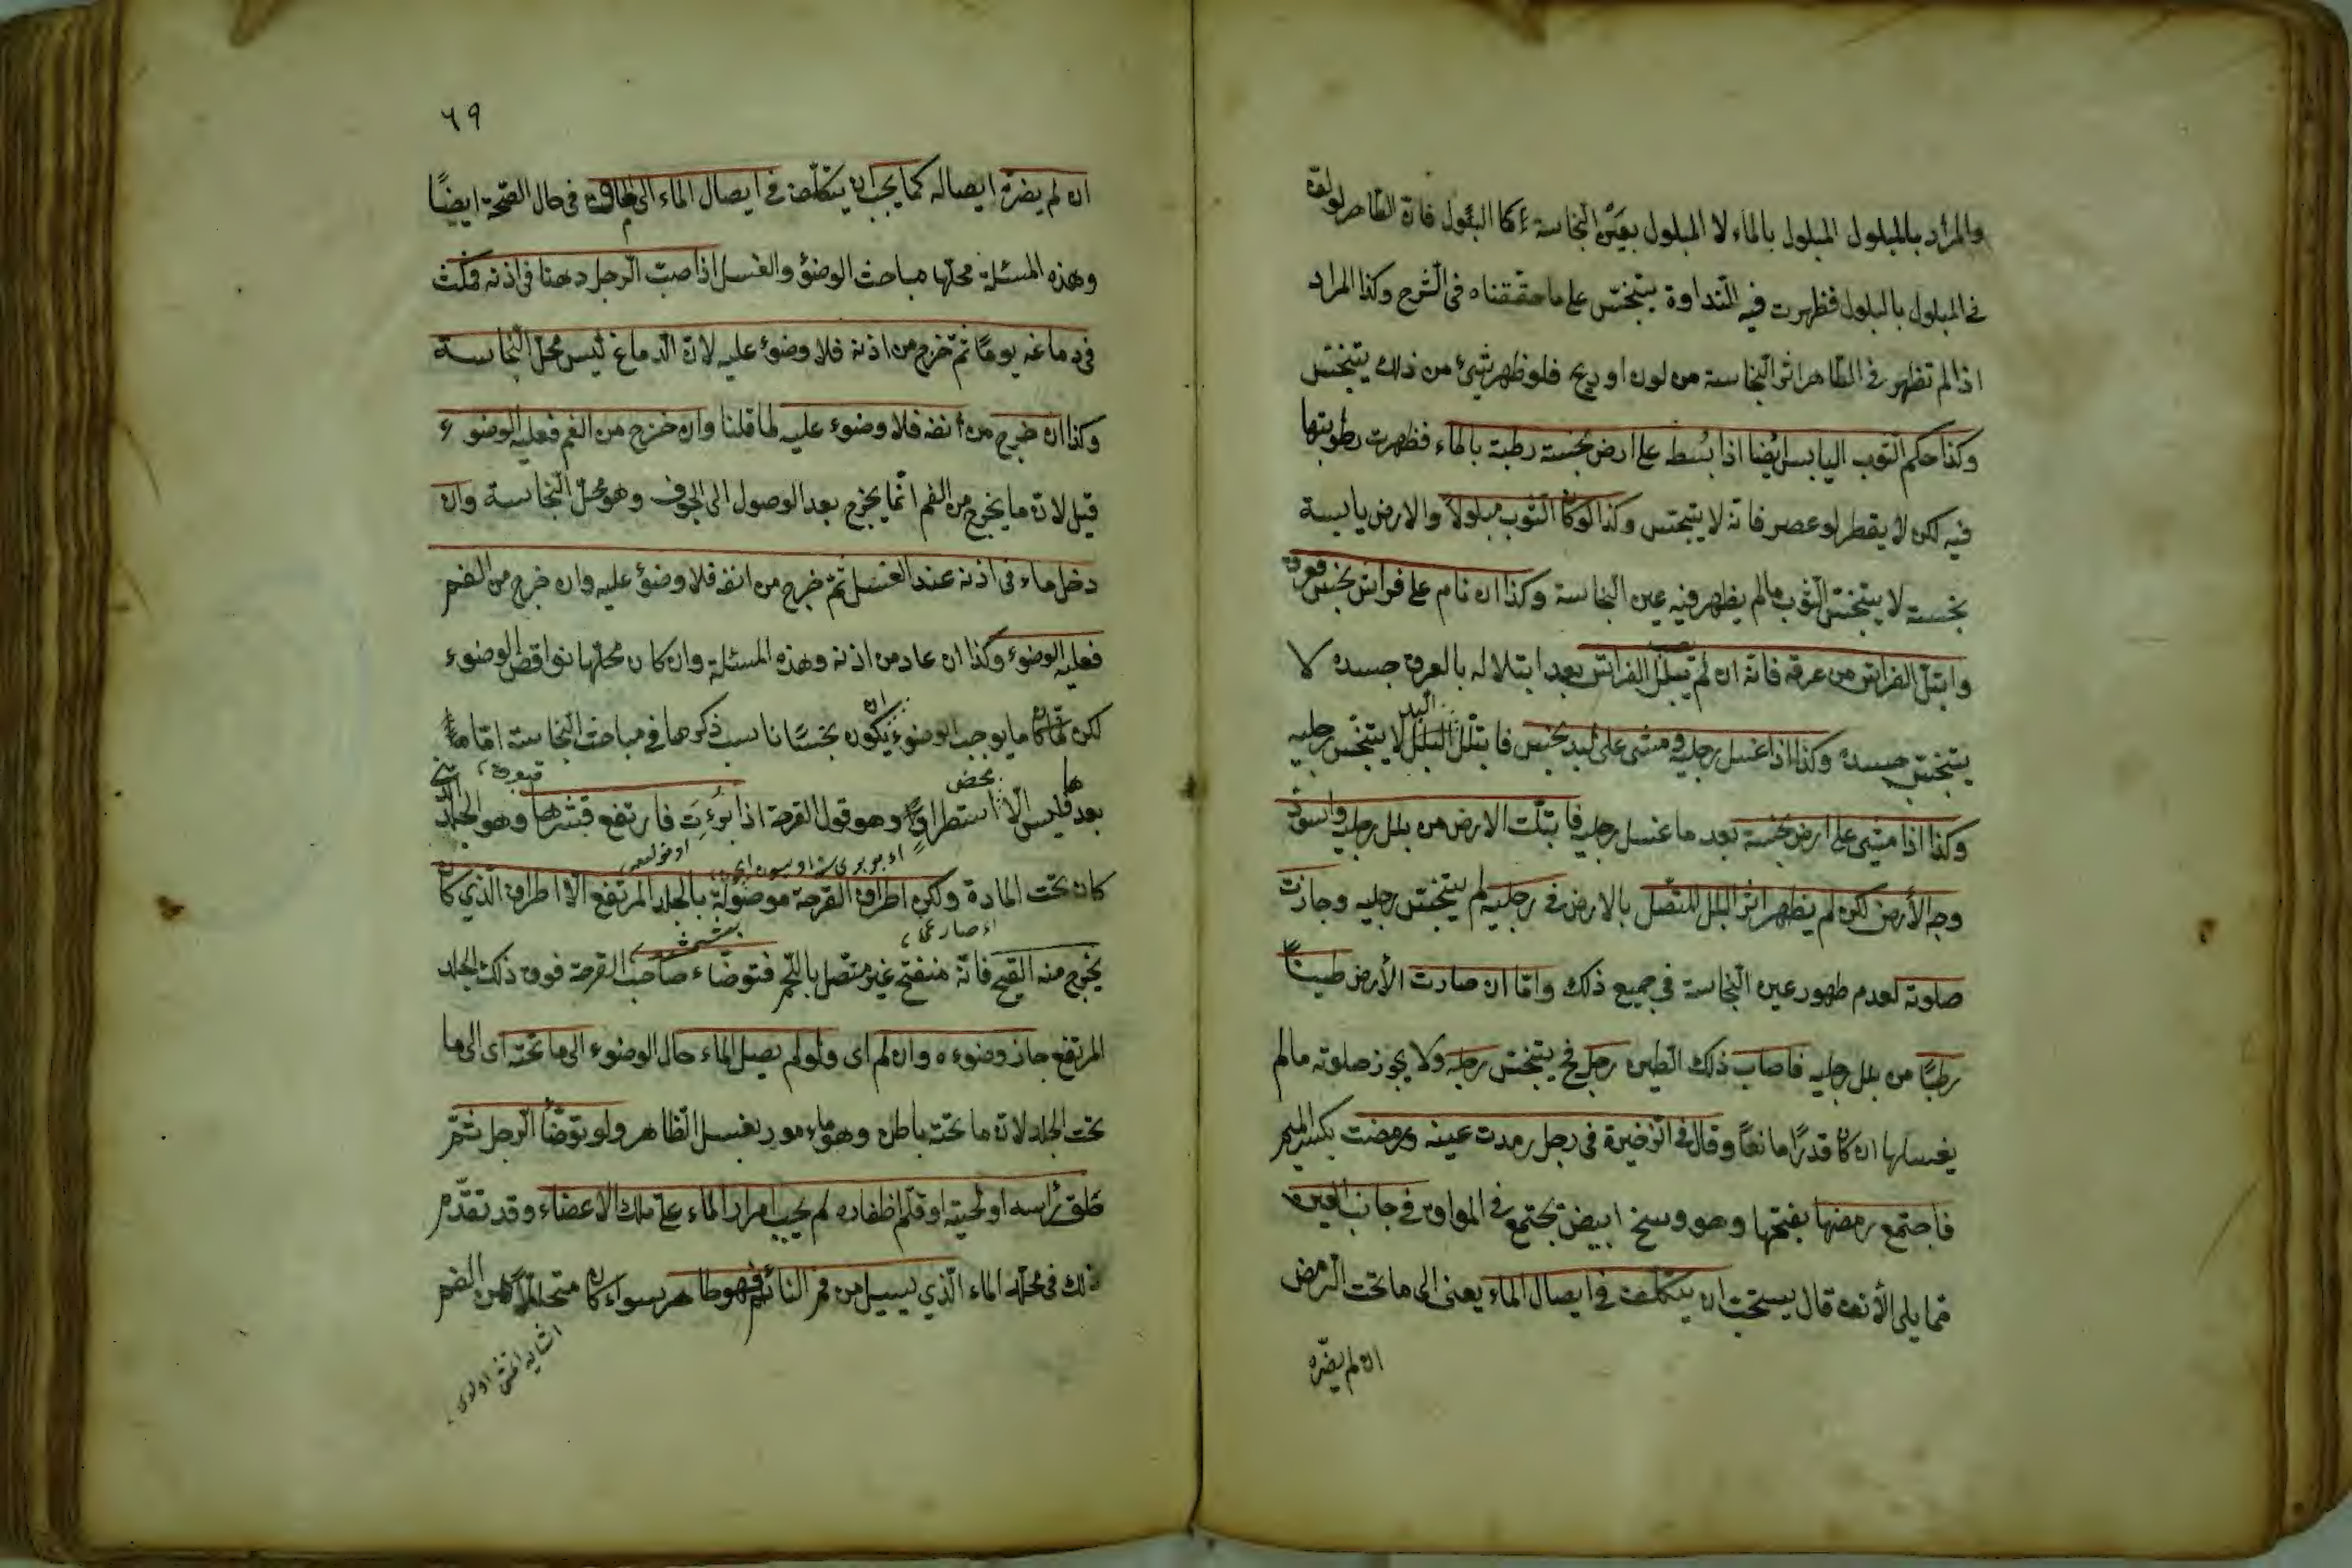 والمراد بالمبلول المبلول بالماء لا المبلول بعين النجاسة كالبول فان الطاهر لو لف
في المبلول بالبول فظهرت فيه النداوة يتنجس على ما حققناه في الشرح وكذا المراد
اذا لم تظهر في الطاهر اثر النجاسة من لون او ريح فلو ظهر شئ من ذلك يتنجس
وكذا حكم الثوب اليابس ايضا اذا بُسط على ارض نجسة رطبة بالماء فظهرت رطوبتها
فيه لكن لا يقطر لو عصر فانه لا يتنجس وكذا لو كان الثوب مبلولا والارض يابسة
نجسة لا يتنجس الثوب ما لم يظهر فيه عين النجاسة وكذا ان نام على فراش نجس فعرق
وابتل الفراش من عرقه فانه ان لم يصب بلل الفراش بعد ابتلاله بالعرق جسده لا
يتنجس جسده وكذا اذا غسل رجليه ومشى على لبد نجس فابتل اللبد لا يتنجس رجليه
وكذا اذا مشى على ارض نجسة بعد ما غسل رجليه فابتلت الارض من بلل رجليه واسود
وجه الأرض لكن لم يظهر اثر البلل المتصل بالارض في رجليه لم يتنجس رجليه وجازت
صلوته لعدم ظهور عين النجاسة في جميع ذلك واما ان صارت الأرض طينا
رطبًا من بلل رجليه فاصاب ذلك الطين رجله فح يتنجس رجله ولا يجوز صلوته ما لم
يغسلها ان كان قدرًا مانعًا وقال في الذخيرة في رجل رمدت عينه ورمضت بكسر الميم
فاجتمع رمضها بفتحها وهو وسخ ابيض يجتمع في الموق في جانب العين
مما يلى الأنف قال يستحب ان يتكلف في ايصال الماء يعنى الى ما تحت الرمض
ان لم يضره
٦٩
ان لم يضره ايصاله كما يجب ان يتكلف في ايصال الماء الى الماق في حال الصحة ايضًا
وهذه المسئلة محلها مباحث الوضوء والغسل اذا صب الرجل دهنا في اذنه فمكث
في دماغه يومًا ثم خرج من اذنه فلا وضوء عليه لان الدماغ ليس محل النجاسة
وكذا ان خرج من انفه فلا وضوء عليه لما قلنا وان خرج من الفم فعليه الوضوء
قيل لان ما يخرج من الفم انما يخرج بعد الوصول الى الجوف وهو محل النجاسة وان
دخل ماء في اذنه عند الغسل ثم خرج من انفه فلا وضوء عليه وان خرج من الفم
فعليه الوضوء وكذا ان عاد من اذنه وهذه المسئلة وان كان محلها نواقض الوضوء
لكن لما كان ما يوجب الوضوء يكون نجسًا ناسب ذكرها في مباحث النجاسة اما ما
بعدها فليس الا استطرادًا محض وهو قوله القرحة اذا برءت فارتفع قشرها وهو الجلد
كان تحت المادة ولكن اطراف القرحة موصولة بالجلد المرتفع الا اطراف الذي كان
يخرج منه القيح فانه منفتح غير متصل باللحم فتوضاء صاحب القرحة فوق ذلك الجلد
المرتفع جاز وضوءه وان لم اى ولو لم يصل الماء حال الوضوء الى ما تحته اى الى ما
تحت الجلد لان ما تحته باطن وهو مامور بغسل الظاهر ولو توضأ الرجل ثم
حلق رأسه او لحيته او قلم اظفاره لم يجب امرار الماء على تلك الاعضاء وقد تقدم
ذلك في محله الماء الذي يسيل من فم النائم فهو طاهر سواء كان متحللا من الفم